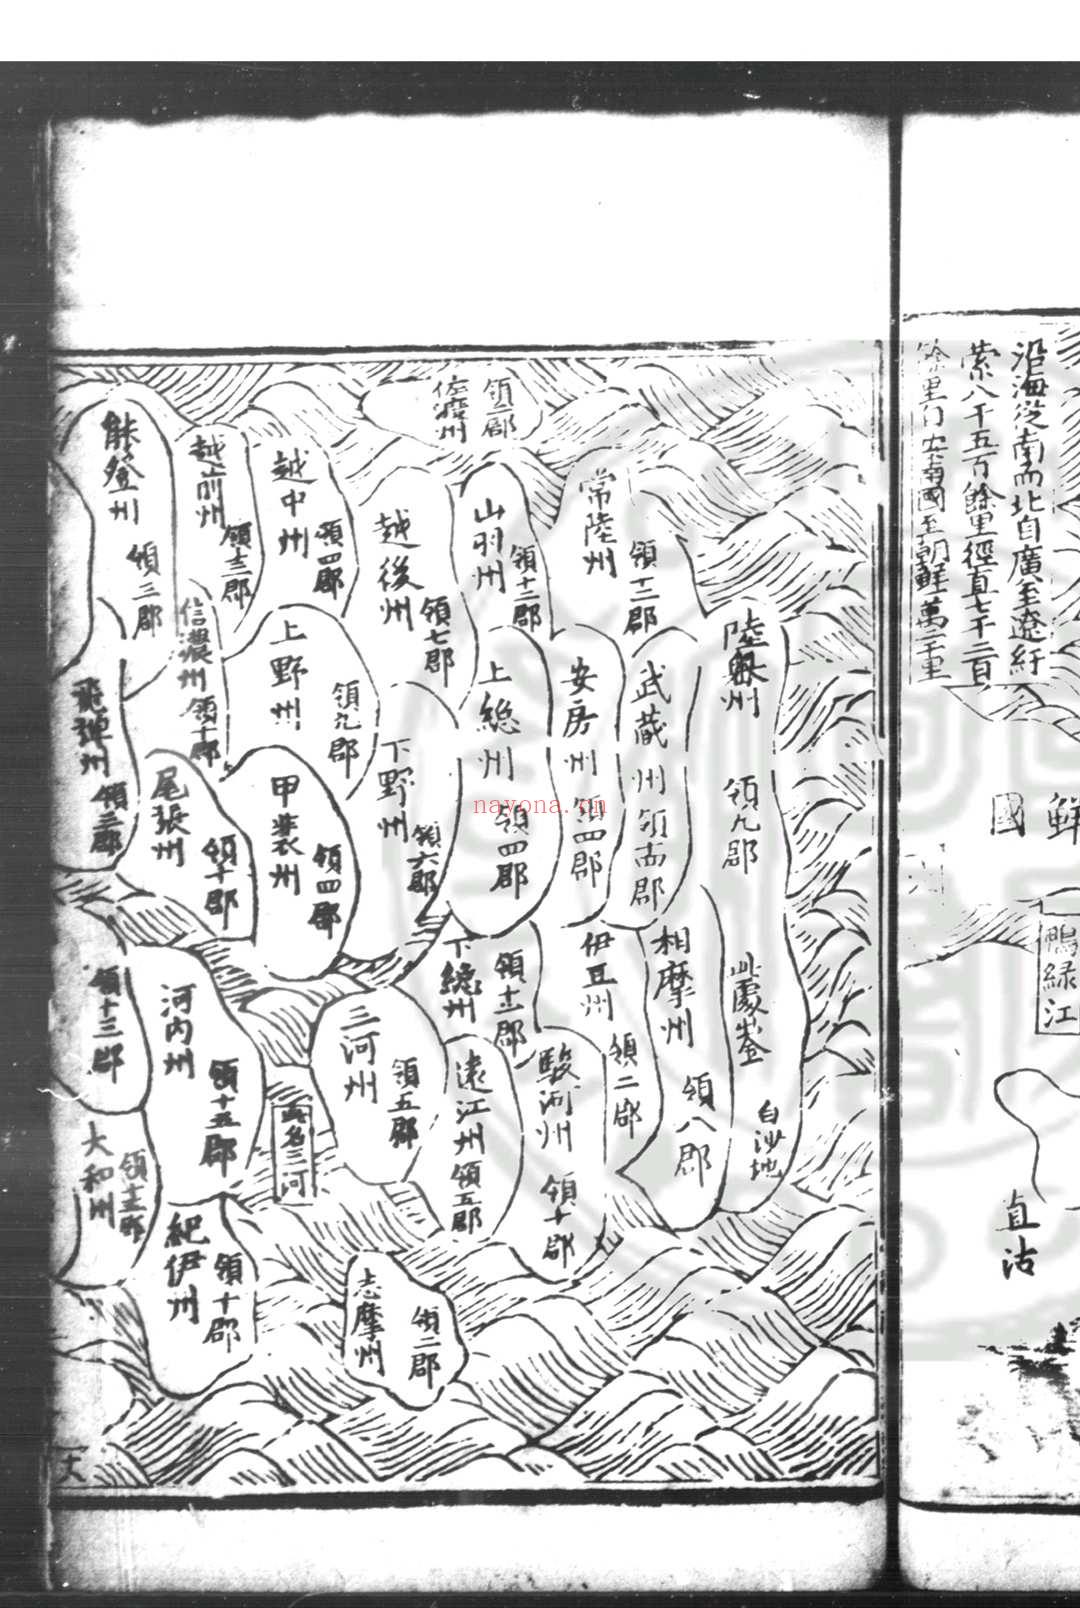 沿海從南而北自廣至遼紆
縈八千五百餘里徑直七千二百
餘里
國至朝鮮萬二千里
鮮
國
鴨緑江
直沽
佐渡州
領三郡
常陸州
領十二郡
陸奥州
領九郡
此處
白沙地
山羽州
領十二郡
越後州
領七郡
越中州
領四郡
越前州
領十二郡
能登州
領三郡
信濃州
領十郡
上野州
領九郡
下野州
領六郡
上総州
領四郡
安房州
領四郡
武蔵州
郡
飛弾州
領三郡
尾張州
領十郡
甲斐州
領四郡
下総州
領十二郡
伊豆州
領二郡
相摩州
領八郡
駿河州
領十郡
遠江州
領五郡
三河州
領五郡
三河
河内州
領十五郡
領十三郡
大和州
紀伊州
領十郡
志摩州
領二郡
nayona.cn